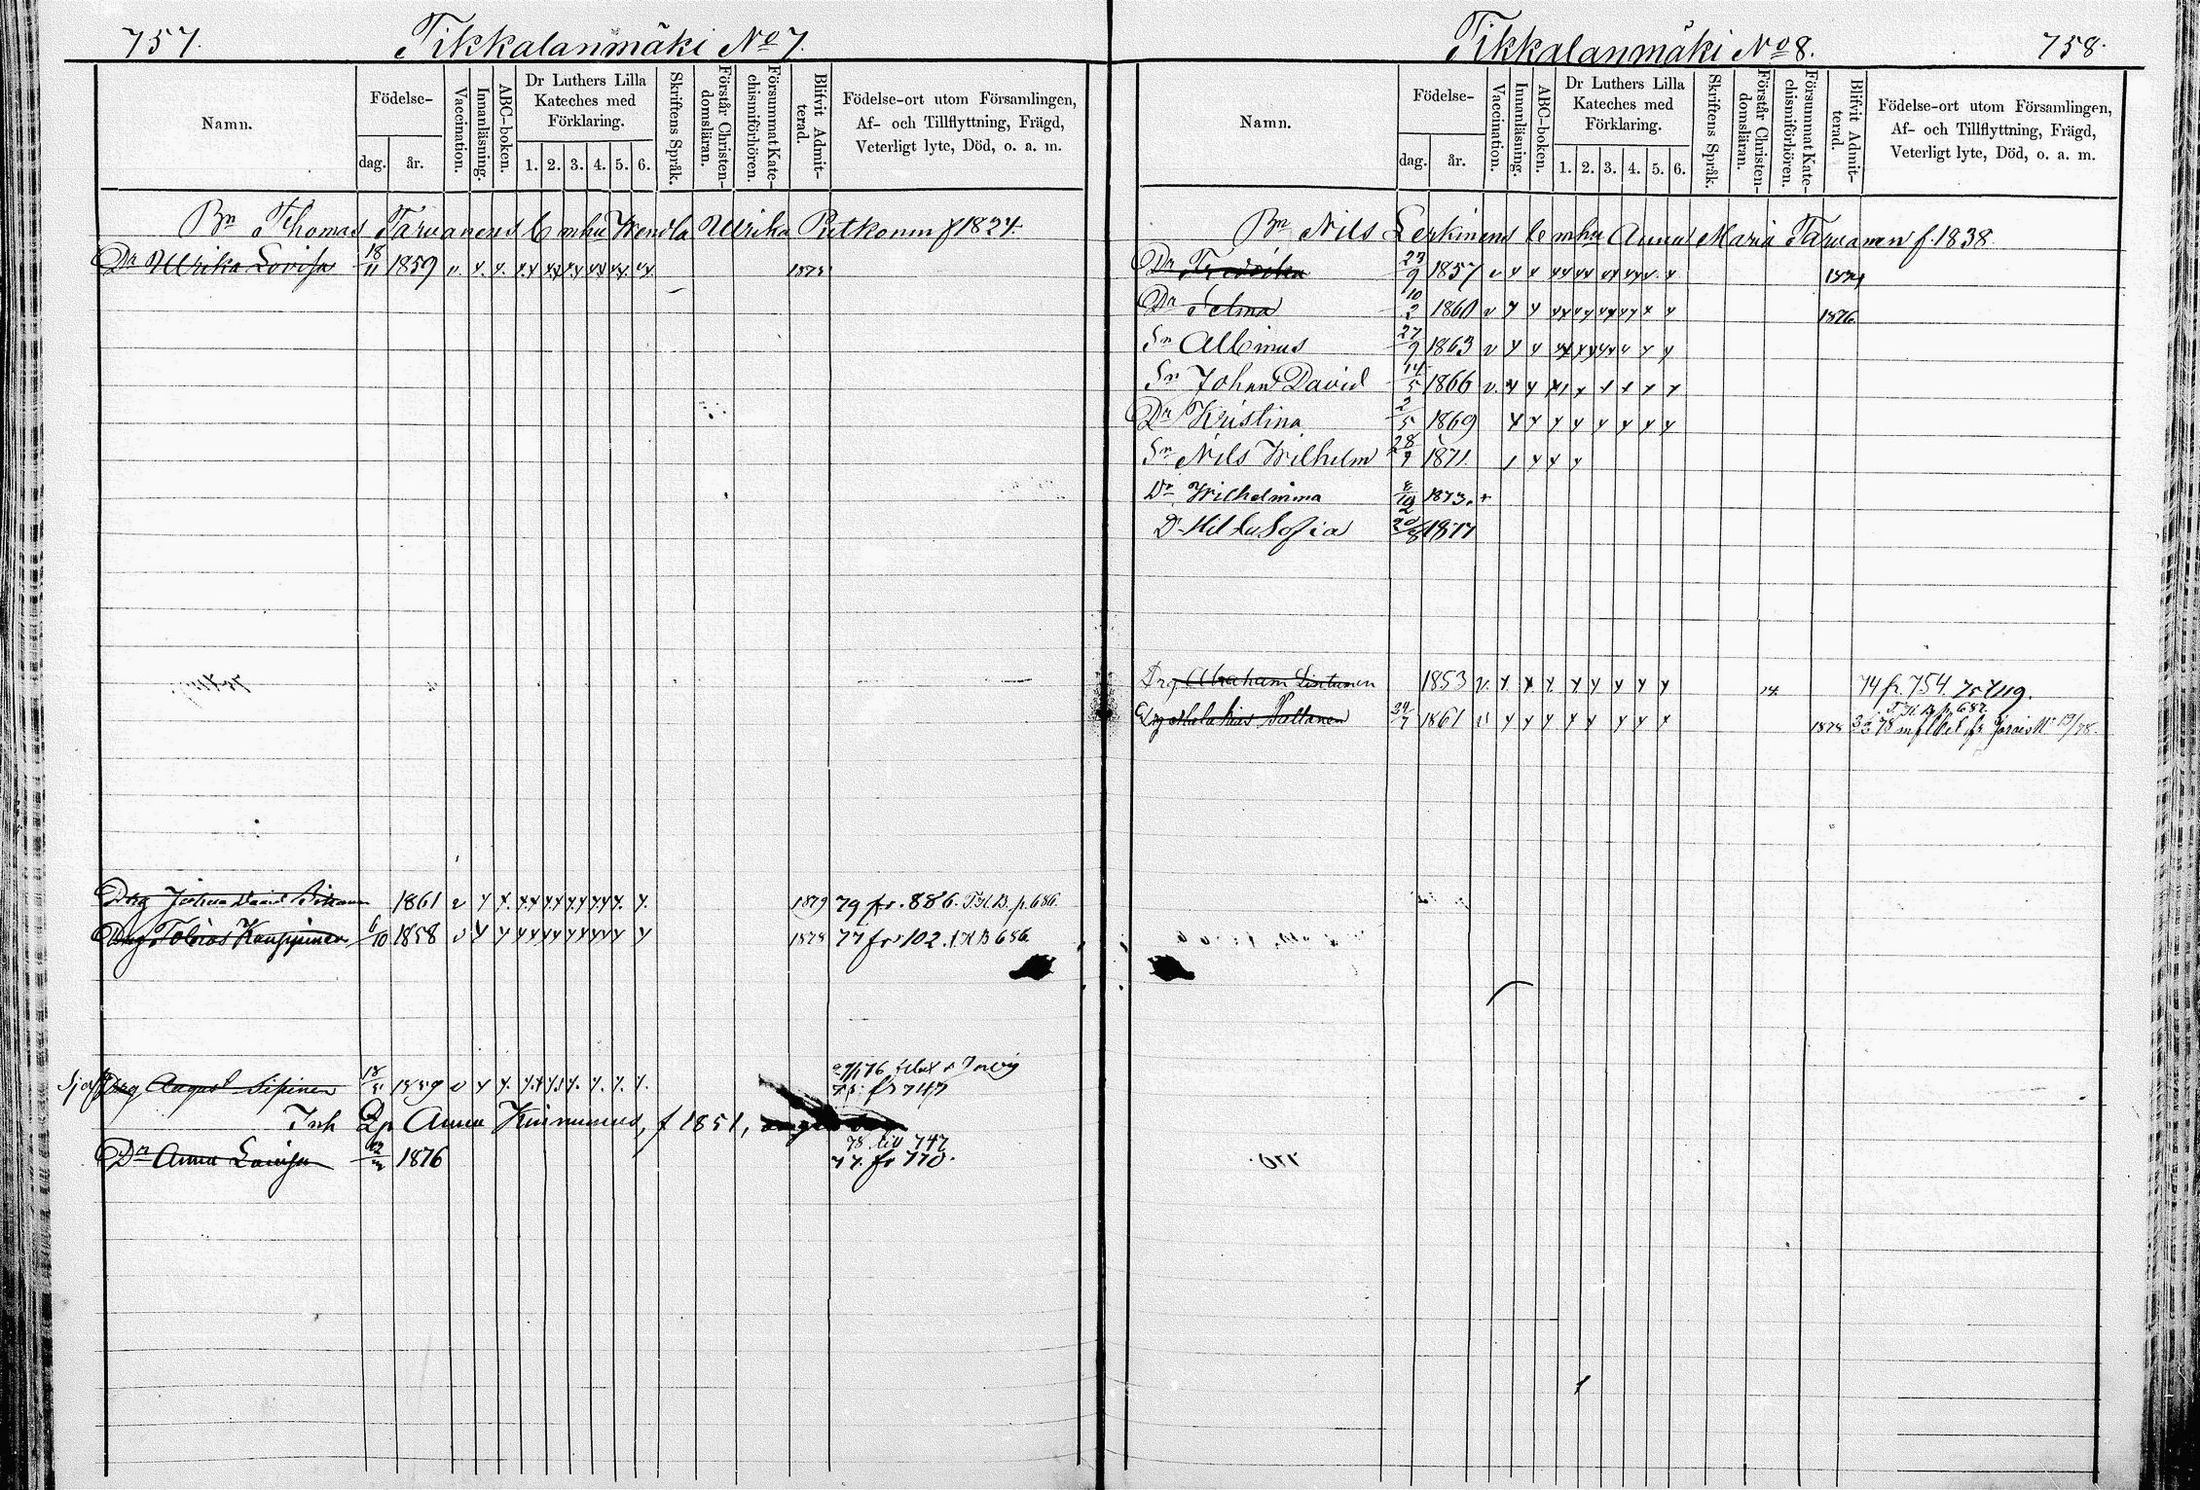 757.
Tikkalanmäki No 7.
Namn.
Födelse-
dag.
år.
Vaccination.
Innanläsning.
ABC-boken.
Dr Luthers Lilla
Kateches med
Förklaring.
1. 2. 3. 4. 5. 6.
Skriftens Språk.
Förstår Christen-
domsläran.
Försummat Kate-
chismiförhören.
Blifvit Admit-
terad.
Födelse-ort utom Församlingen,
Af- och Tillflyttning, Frägd,
Veterligt lyte, Död, o. a. m.
Bn Thomas Tarvanens Enkhu Wendla Ulrika Putkonen f 1824.
Dr Ulrika Lovisa 18/11 1859 v. 1875
Drg Johan David 1861 v 1879 79 fr. 886. T.K.B. p. 686.
Drg Tobias Kauppinen 6/10 1858 v 1878 77 fr 102. T.K.B 686
Drg August Sipinen 18/5 1859 v
75. fr 747
Inh Qp Anna Kinnunen, f 1851,
78 till 747
Dr Anna Lovisa 1876 77. fr 770.
Tikkalanmäki No 8.
758.
Namn.
Födelse-
dag.
år.
Vaccination.
Innanläsning.
ABC-boken.
Dr Luthers Lilla
Kateches med
Förklaring.
1. 2. 3. 4. 5. 6.
Skriftens Språk.
Förstår Christen-
domsläran.
Försummat Kate-
chismiförhören.
Blifvit Admit-
terad.
Födelse-ort utom Församlingen,
Af- och Tillflyttning, Frägd,
Veterligt lyte, Död, o. a. m.
Bn Nils Lerkinens Enkhu Anna Maria Tarvanen f. 1838.
Dr Fredrika 23/9 1857 v 1874
Dr Selma 10/2 1860 v 1876
Sn Albinus 27/9 1863 v
Sn Johan David 14/5 1866 v.
Dr Kristina 2/5 1869
Sn Nils Wilhelm 28/9 1871.
Dr Wilhelmina 1873.
Dr Hilda Sofia 20/8 1877
Drg Abraham Lintunen 1853 v. 14 74 fr. 754.
T.K.B. p. 687.
Paltanen 24/7 1861 v 1878